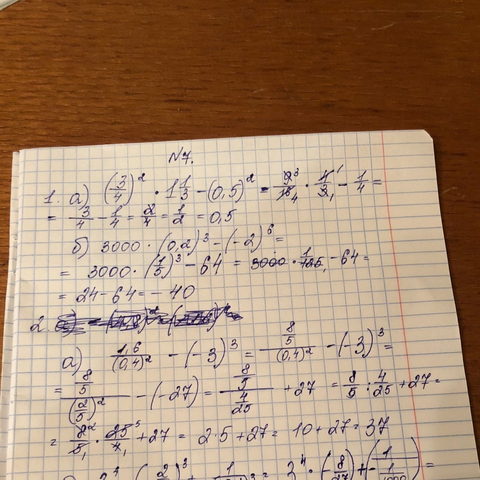 N7.
1. а) (3/4)² · 1 1/3 − (0,5)² = 9³/16₄ · 4¹/3₁ − 1/4 =
= 3/4 − 1/4 = 2/4 = 1/2 = 0,5
б) 3000 · (0,2)³ − (−2)⁶ =
= 3000 · (1/5)³ − 64 = 3000 · 1/125₁ − 64 =
= 24 − 64 = − 40
2.
а) 1,6/(0,4)² − (−3)³ = 8/5/(0,4)² − (−3)³ =
= 8/5/(2/5)² − (−27) = 8/5/4/25 + 27 = 8/5 : 4/25 + 27 =
= 8²/5₁ · 25⁵/4₁ + 27 = 2 · 5 + 27 = 10 + 27 = 37
= 3⁴ · (−8/27) + (−1/